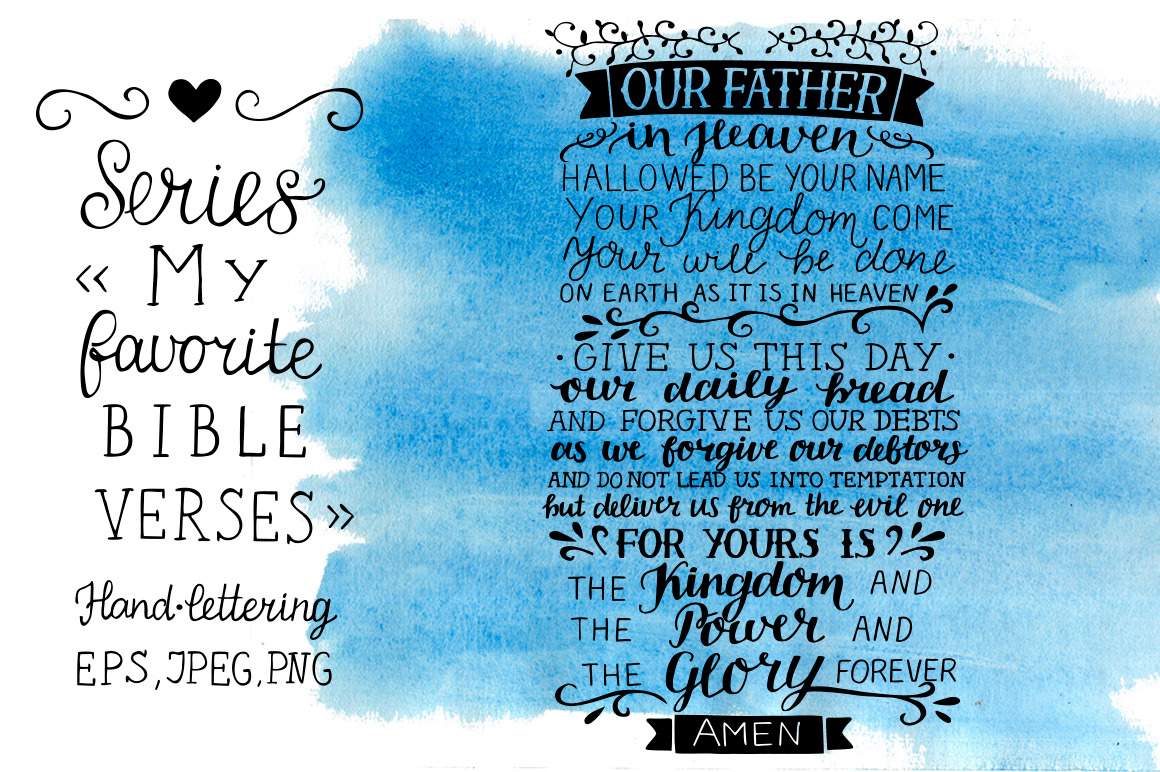 Series
« My
favorite
BIBLE
VERSES»
Hand•lettering
EPS, JPEG, PNG
OUR FATHER
in Heaven
HALLOWED BE YOUR NAME
YOUR Kingdom COME
Your will be done
ON EARTH AS IT IS IN HEAVEN
•GIVE US THIS DAY•
our daily bread
AND FORGIVE US OUR DEBTS
as we forgive our debtors
AND DO NOT LEAD US INTO TEMPTATION
but deliver us from the evil one
FOR YOURS IS
THE Kingdom AND
THE Power AND
THE Glory FOREVER
AMEN